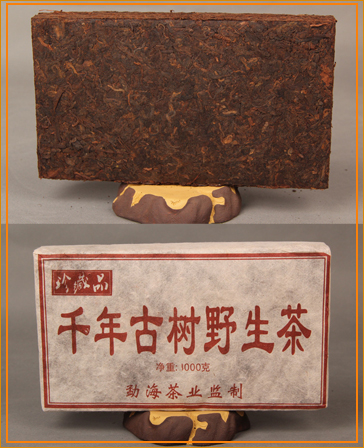 珍藏品
千年古树野生茶
净重:1000克
勐海茶业监制